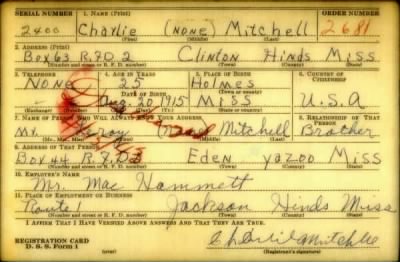 SERIAL NUMBER 1. NAME (Print) ORDER NUMBER
2400 Charlie (NONE) Mitchell 2681
(First) (Middle) (Last)
2. ADDRESS (Print)
Box 63 R.F.D 2 Clinton Hinds Miss
(Number and street or R. F. D. number) (Town) (County) (State)
3. TELEPHONE 4. AGE IN YEARS 5. PLACE OF BIRTH 6. COUNTRY OF CITIZENSHIP
None 25 Holmes
DATE OF BIRTH
Aug. 20 1915 Miss U.S.A
(Exchange) (Number) (Mo.) (Day) (Yr.) (State or country)
7. NAME OF PERSON WHO WILL ALWAYS KNOW YOUR ADDRESS 8. RELATIONSHIP OF THAT PERSON
Mr. Leroy Mitchell Brother
(Mr., Mrs., Miss) (First) (Middle) (Last)
9. ADDRESS OF THAT PERSON
Box 44 R.F.D Eden Yazoo Miss
(Number and street or R. F. D. number) (Town) (County) (State)
10. EMPLOYER'S NAME
Mr. Mac Hammett
11. PLACE OF EMPLOYMENT OR BUSINESS
Route 1 Jackson Hinds Miss
(Number and street or R. F. D. number) (Town) (County) (State)
I AFFIRM THAT I HAVE VERIFIED ABOVE ANSWERS AND THAT THEY ARE TRUE.
REGISTRATION CARD
D. S. S. Form 1 Charlie Mitchell